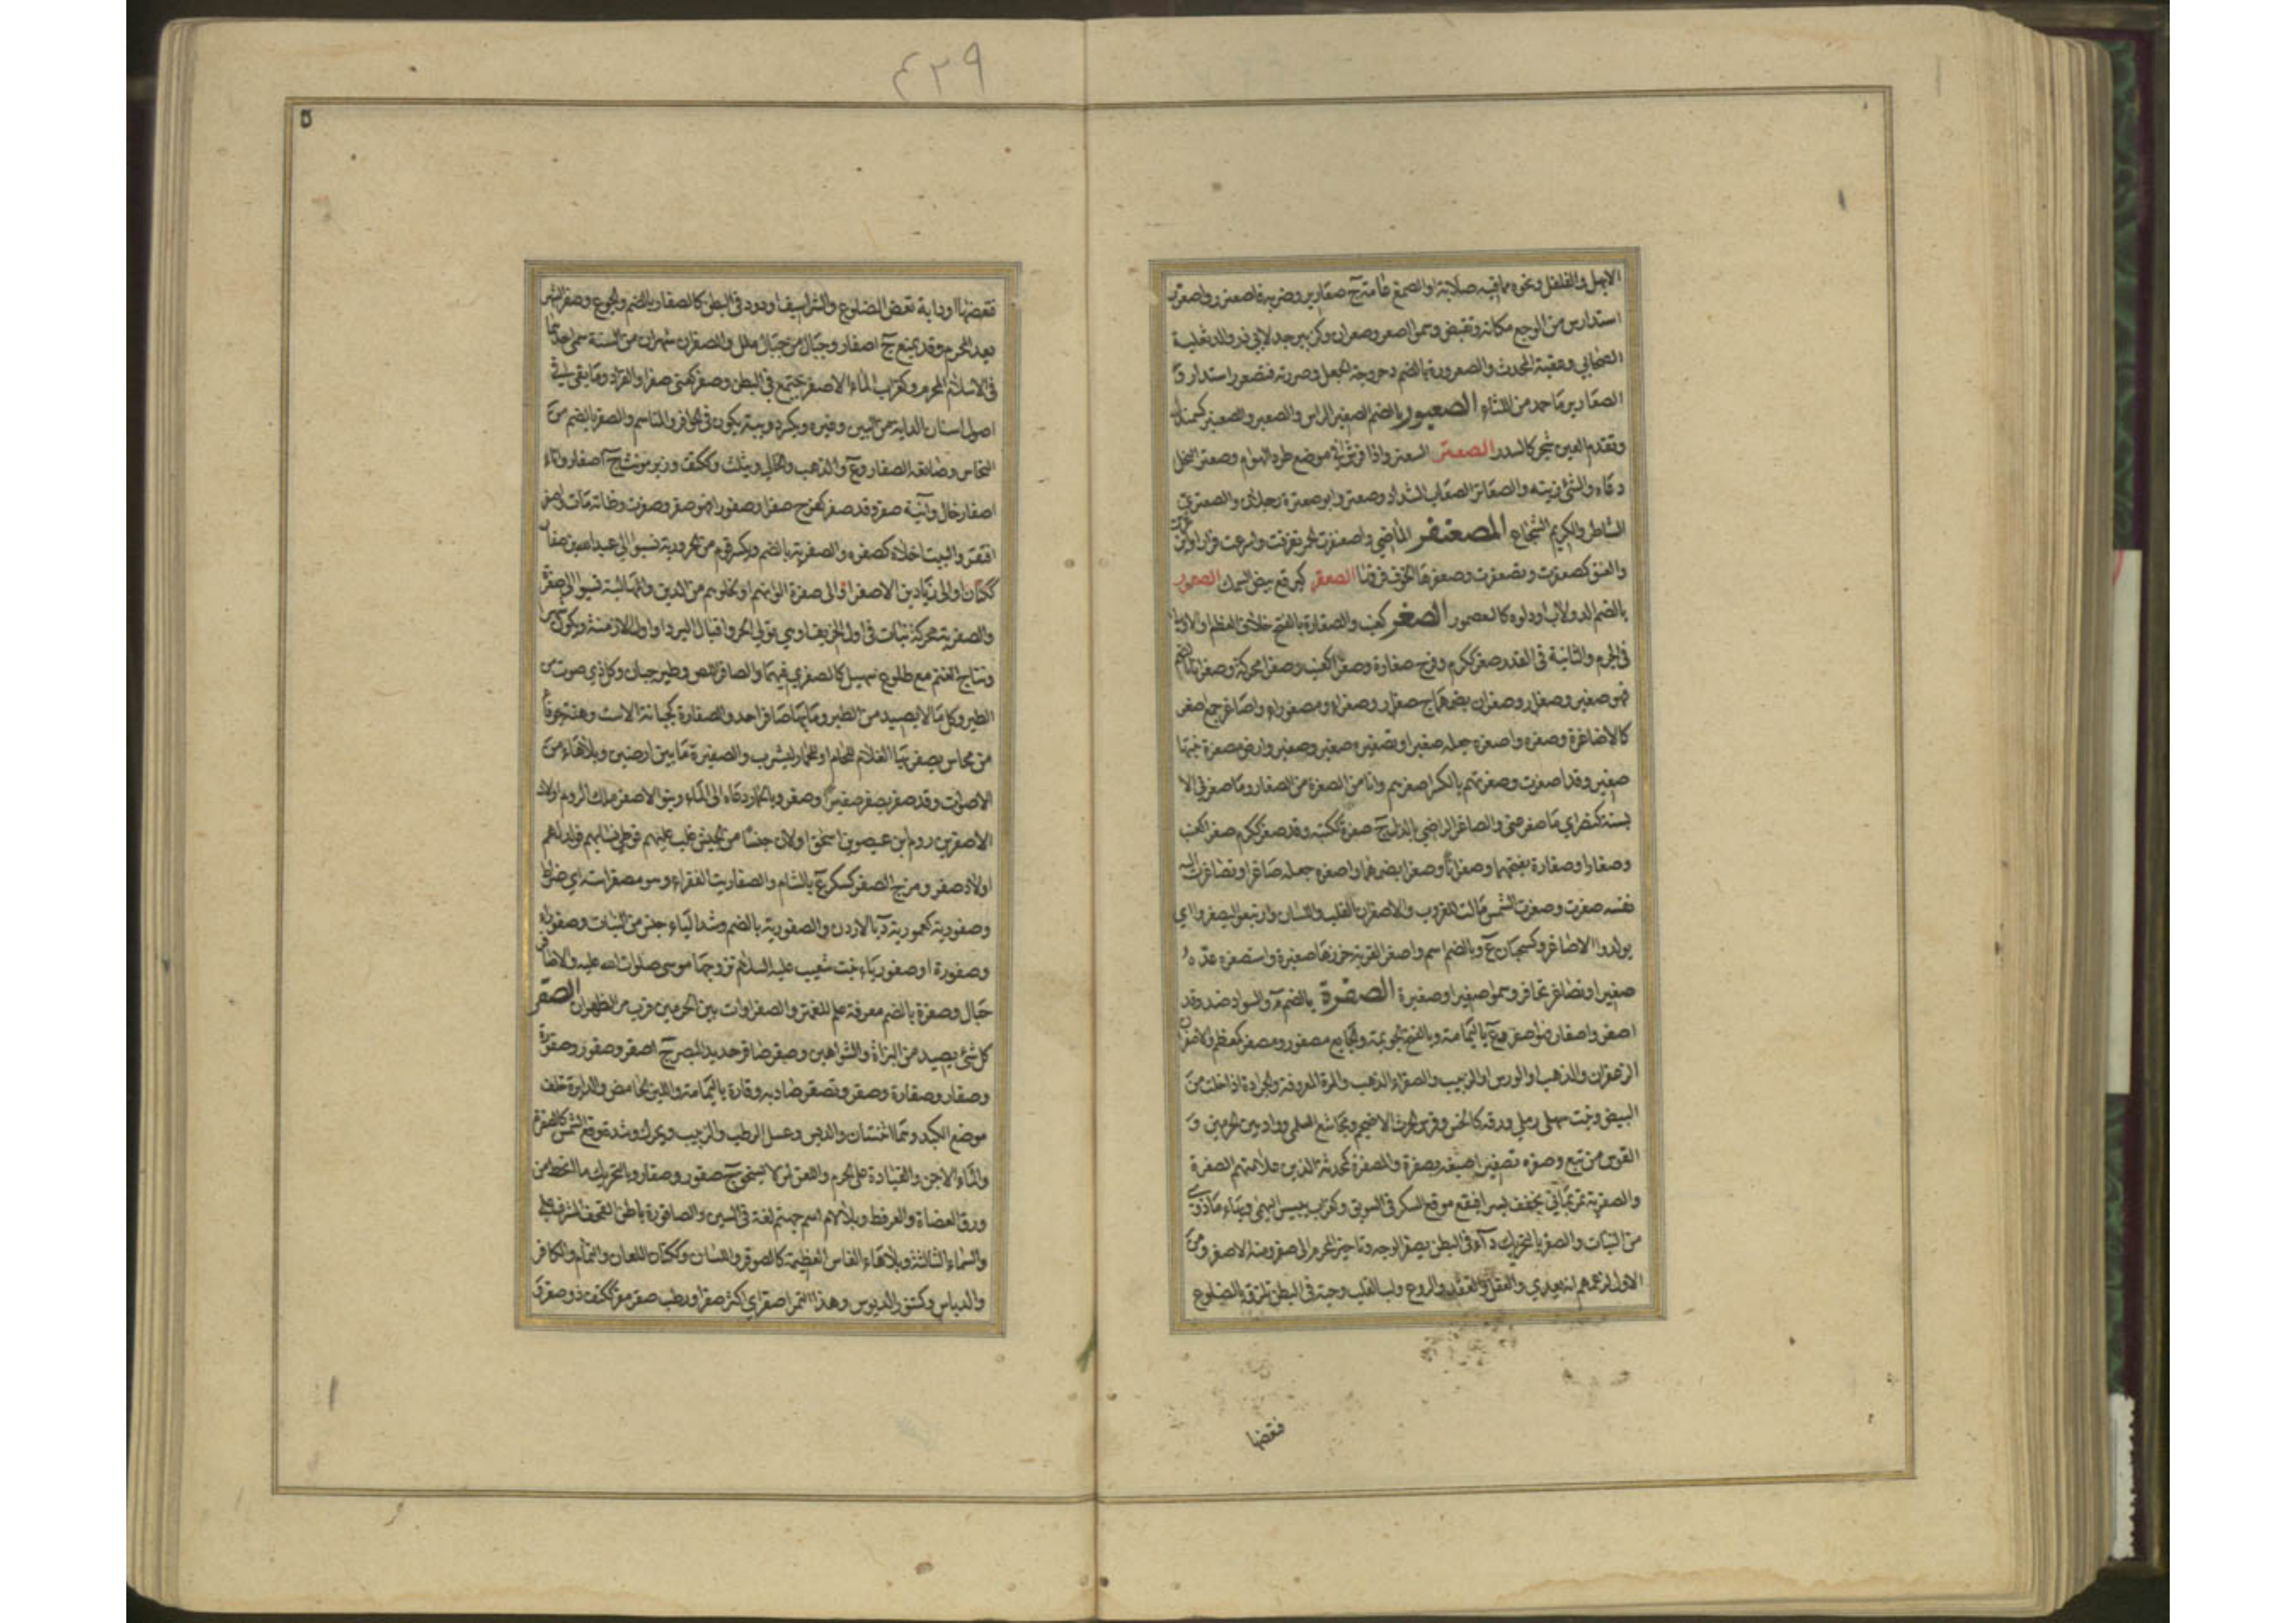 الابهل والفلفل ونحوه مما فيه صلابة والصمغ جامد ج صعارير وضربه فاصعنرر واصعرر
استدار من الوجع مكانه وتقبض وسموا صعر وصعران وكزبير جد لابي ذر والد ثعلبة
الصحابي وعقبة المحدث والصعرورة بالضم دحروجة الجعل وصررته فتصعرر استدار و
الصعارير ما جمد من اللثاء الصعبور بالضم الصغير الراس والصعبر والصعنبر كسمندل
وتقدم العين شجر كالسدر الصعتر السعتر واذا فرش في موضع طرد الهوام وصعتر النخل
دعاه والشئ زينه والصعاتر الصعاب الشداد وصعتر وابو صعترة رجلان والصعتري
الشاطر والكريم الشجاع المصعنفر الماضي واصعنفرت الحمر تفرقت واسرعت فرارا وابن
والعنق كصعفرت وتصعفرت وصعفرها الخوف فرقها الصعقر كبرقع بيض السمك الصعمور
بالضم الدولاب او دلوه كالعصمور الصغر كعنب والصغارة بالفتح خلاف العظم او الاولى
في الجرم والثانية في القدر صغر ككرم وفرح صغارة وصغرا كعنب وصغرا محركة وصغرانا بالضم
فهو صغير وصغار وصغران بضمهما ج صغار وصغراء ومصغوراء واصاغر جمع اصغر
كالاصاغرة وصغره واصغره جعله صغيرا وتصغيره صغير وصغير وارض مصغرة نبتها
صغير وقد اصغرت وصغرتهم بالكسر اصغرهم وانا من الصغرة من الصغار وما صغرني الا
بسنة كنصر اي ما صغر عني والصاغر الراضي بالذل ج صغرة ككتبة وقد صغر ككرم صغرا كعنب
وصغارا وصغارة بفتحهما وصغرانا وصغرا بضمهما واصغره جعله صاغرا وتصاغرت اليه
نفسه صغرت وصغرت الشمس مالت للغروب والاصغران القلب واللسان وارتبعوا ليصغروا اي
يولدوا الاصاغر وكسحبان ع وبالضم اسم واصغر القربة خرزها صغيرة واستصغره عده
صغيرا وتصاغر تحاقر وسموا صغيرا وصغيرة الصفرة بالضم م والسواد ضد وقد
اصفر واصفار فهو اصفر وع باليمامة وبالفتح الجوعة والجايع مصفور ومصفر كمعظم والاصفران
الزعفران والذهب او الورس او الزبيب والصفراء الذهب والمرة المعروفة والجرادة اذا خلت من
البيض ونبت سهلي رملي ورقه كالخس وفرس الحرث الاضجم ومجاشع السلمي وواد بين الحرمين و
القوس من نبع وصفره تصفيرا صبغه بصفرة والمصفرة كمحدثة الذين علامتهم الصفرة
والصفرية تمر يماني يجفف بسرا فيقع موقع السكر في السويق وكغراب يبيس البهمى ونباء ما ذوي
من النبات والصفر بالتحريك داء في البطن يصفر الوجه وتاخير المحرم الى صفر ومنه لا صفر ومن
الاول لزعمهم انه يعدي والعقل والعقد والروع ولب القلب وحية في البطن تلزق بالضلوع
فقضها
٤٢٩
فتعضها او دابة تعض الضلوع والشراسيف او دود في البطن كالصفار بالضم والجوع وصفر الشهر
بعد المحرم وقد يمنع ج اصفار وجبال من جبال ملل والصفران شهران من السنة سمي احدهما
في الاسلام المحرم وكغراب الماء الاصفر يجتمع في البطن وصفر كعني صفرا والقراد وما بقي في
اصول اسنان الدابة من التبن وغيره ويكسر ودويبة تكون في الحوافر والمناسم والصفر بالضم من
النحاس وصانعه الصفار وع والذهب والخالي ويثلث وككتف وزبر مونثه ج اصفار واناء
اصفار خال وآنية صفر وقد صفر كفرح صفرا وصفورا فهو صفر وصفرت وطابه مات واصفر
افتقر والبيت اخلاه كصفره والصفرية بالضم ويكسر قوم من الحرورية نسبوا الى عبد الله بن صفار
ككتان او الى زياد بن الاصفر او الى صفرة الوانهم او لخلوهم من الدين والمهالبة نسبوا الى ابي صفرة
والصفرية محركة نبات في اول الخريف او هي تولي الحر واقبال البرد او اول الازمنة ويكون شهرا
ونتاج الغنم مع طلوع سهيل كالصفري فيهما والصافر اللص وطير جبان وكل ذي صوت من
الطير وكل ما لا يصيد من الطير وما بها صافر احد والصفارة كجبانة الاست وهنة جوفاء
من نحاس يصفر فيها الغلام للحمام او للحمار ليشرب والصفيرة ما بين ارضين وبلا هاء من
الاصوات وقد صفر يصفر صفيرا وصفر وبالحمار دعاه الى الماء وبنو الاصفر ملوك الروم اولاد
الاصفر بن روم بن عيصو بن اسحق او لان جيشا من الحبش غلب عليهم فوطئ نساءهم فولد لهم
اولاد صفر ومرج الصفر كسكر ع بالشام والصفاريت الفقراء وهو مصفر استه اي ضراط
وصفورية كعمورية د بالاردن والصفورية بالضم وشد الياء جنس من النبات وصفوراء
وصفورة او صفورياء بنت شعيب عليه السلام تزوجها موسى صلوات الله عليه والاصافر
جبال وصفرة بالضم معرفة علم للعنز والصفراوات بين الحرمين قرب مر الظهران الصقر
كل شئ يصيد من البزاة والشواهين وصقر صاقر حديد البصر ج اصقر وصقور وصقورة
وصقار وصقارة وصقر وتصقر صاد به وقارة باليمامة واللبن الحامض والدايرة خلف
موضع الكبد وهما اثنتان والدبس وعسل الرطب والزبيب ويحرك وشدة وقع الشمس كالصقرة
والماء الآجن والقيادة على الحرم واللعن لمن لا يستحق ج صقور وصقار وبالتحريك ما انحط من
ورق العضاه والعرفط وبلا لام اسم جهنم لغة في السين والصاقورة باطن القحف المشرف على
والسماء الثالثة وبلا هاء الفاس العظيمة كالصوقر واللسان وككتان اللعان والنمام والكافر
والدباس وكتنور الديوس وهذا التمر اصقر اي اكثر صقرا ورطب صقر مقر ككتف ذو صقر و